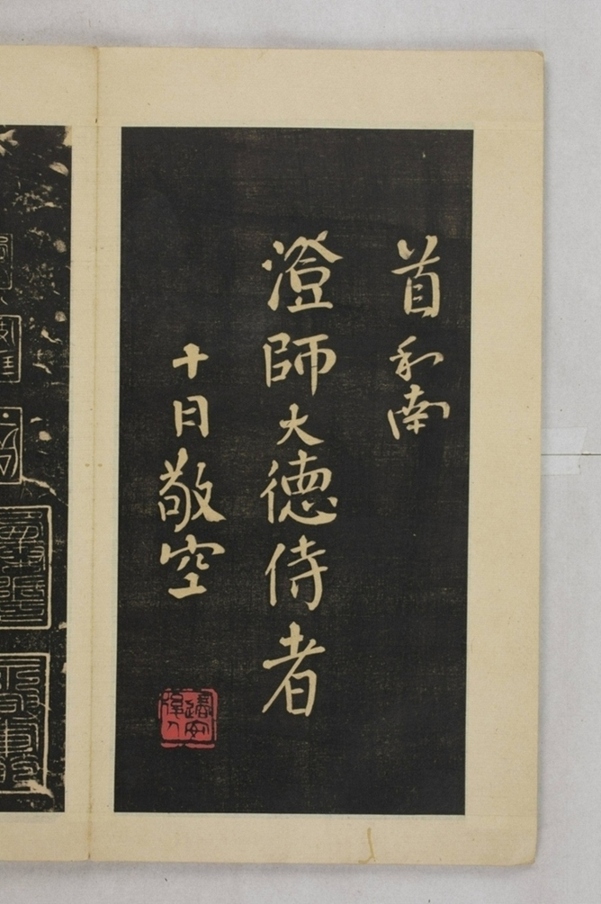 首和南
澄師大德侍者
十日敬空